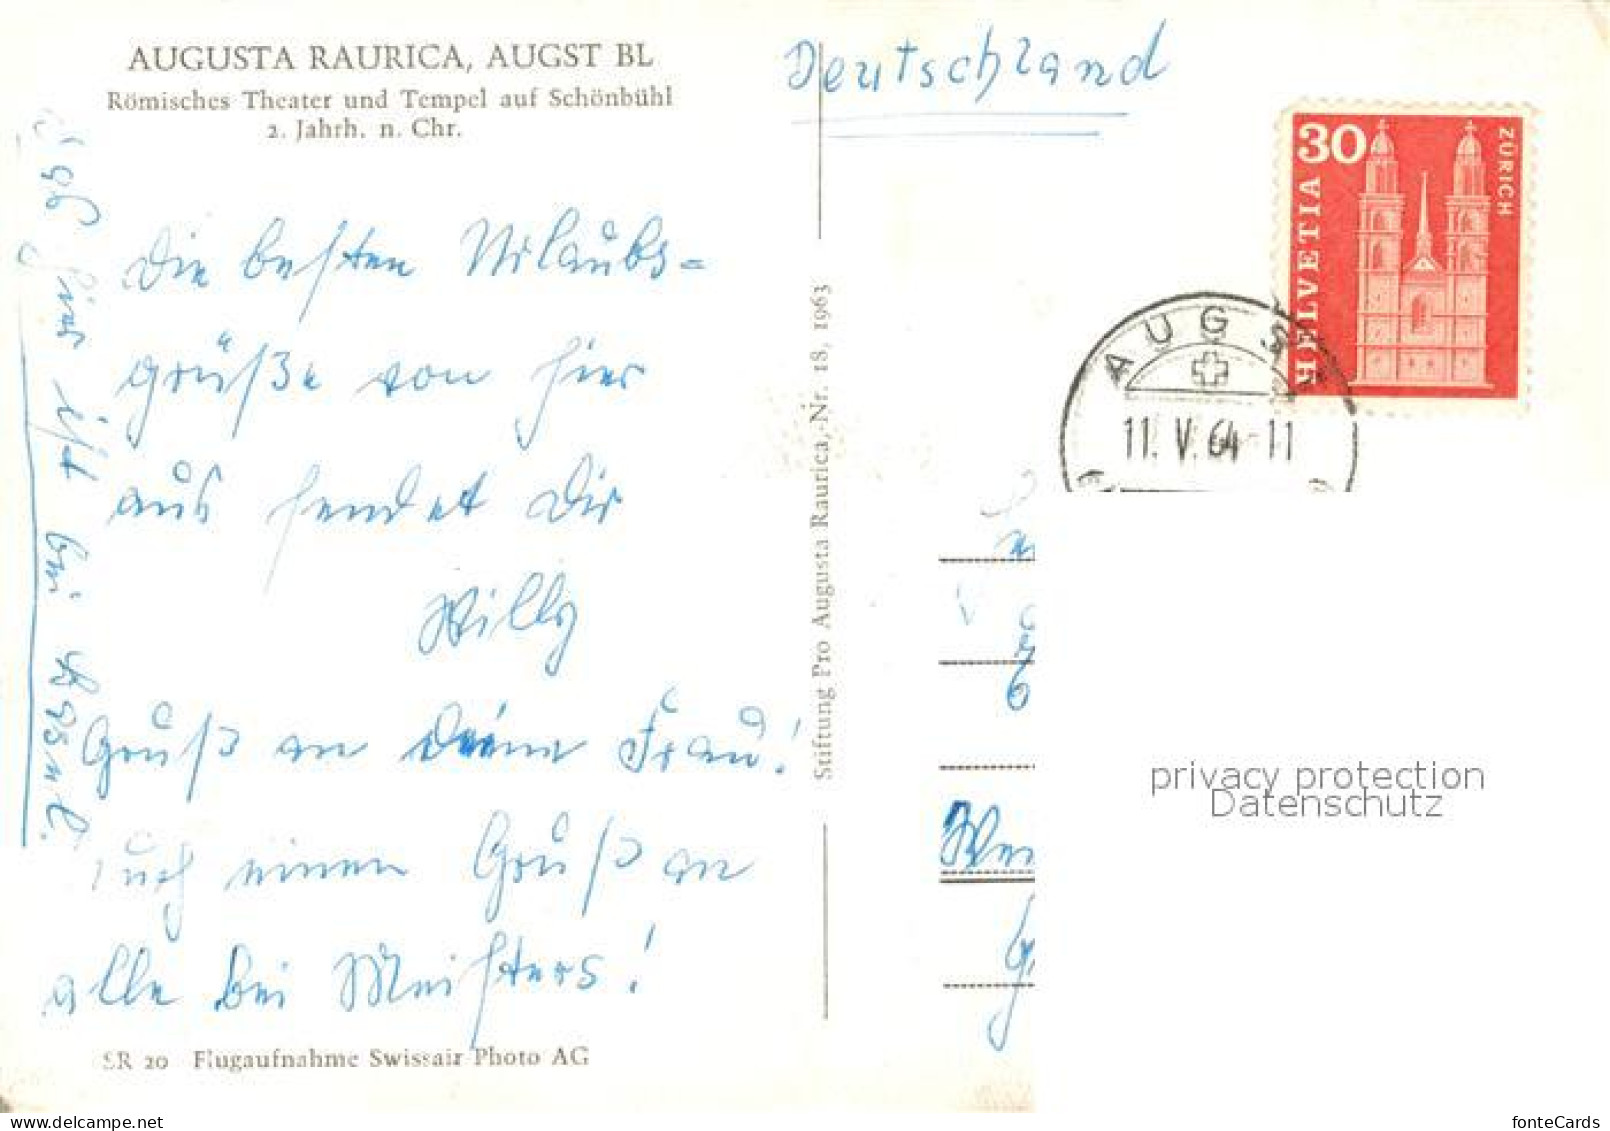 AUGUSTA RAURICA, AUGST BL
Römisches Theater und Tempel auf Schönbühl
2. Jahrh. n. Chr.
Die besten Urlaubs-
grüße von hier
aus sendet Dir
Willy
Gruß an Deine Frau!
Auch einen Gruß an
alle bei Meisters!
hier ist bei Basel.
SR 20 Flugaufnahme Swissair Photo AG
Stiftung Pro Augusta Raurica, Nr. 18, 1963
Deutschland
30
HELVETIA
ZÜRICH
AUGST
11. V. 64-11
privacy protection
Datenschutz
fonteCards